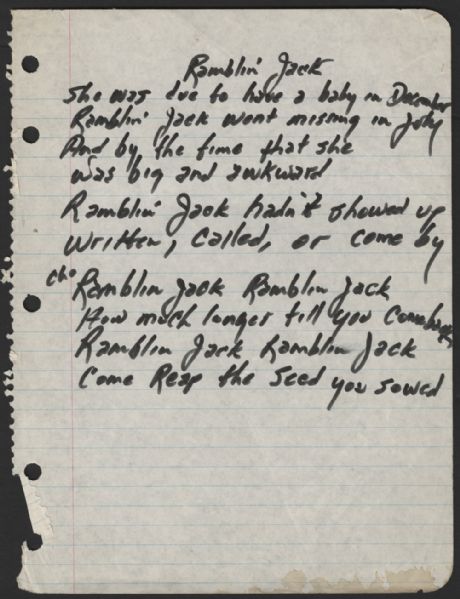 Ramblin' Jack
She was due to have a baby in December
Ramblin' Jack went missing in July
And by the time that she
was big and awkward
Ramblin' Jack hadn't showed up
written, called, or come by
cho Ramblin Jack Ramblin Jack
How much longer till you come back
Ramblin Jack Ramblin Jack
Come Reap the Seed you sowed